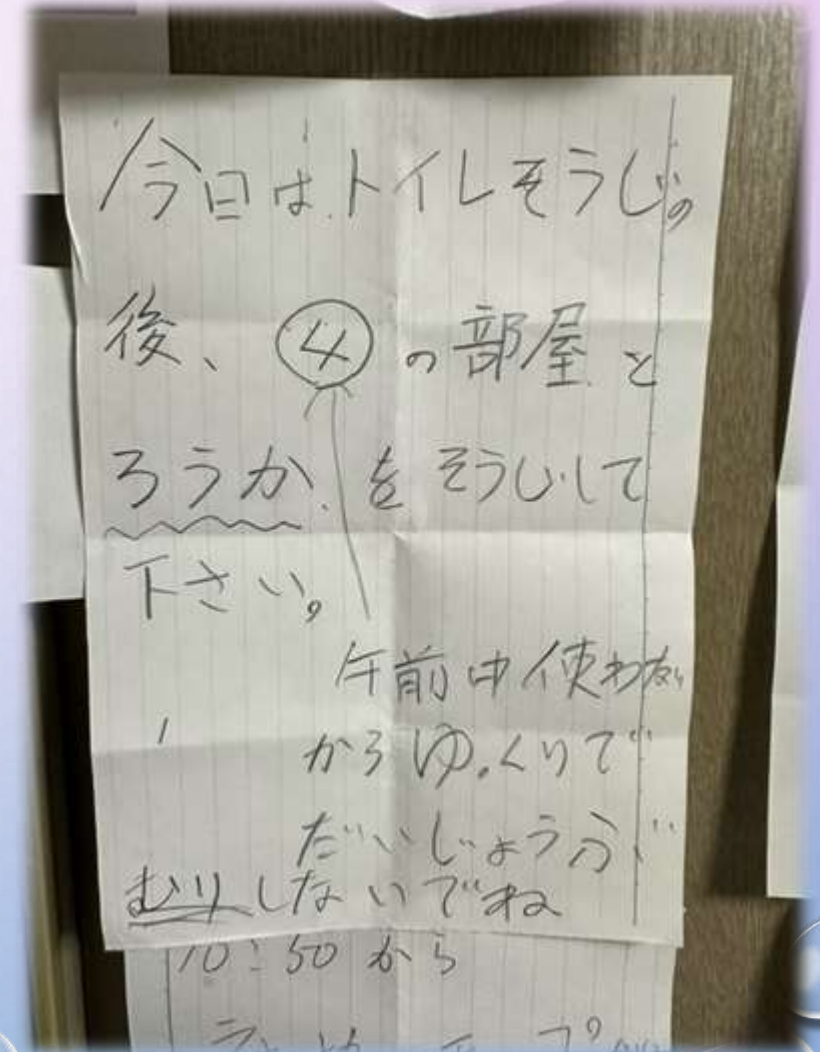 今日はトイレそうじの
後、④の部屋と
ろうか、をそうじして
下さい。
午前中使わない
からゆっくりで
だいじょうぶ
むりしないでね
10:50から